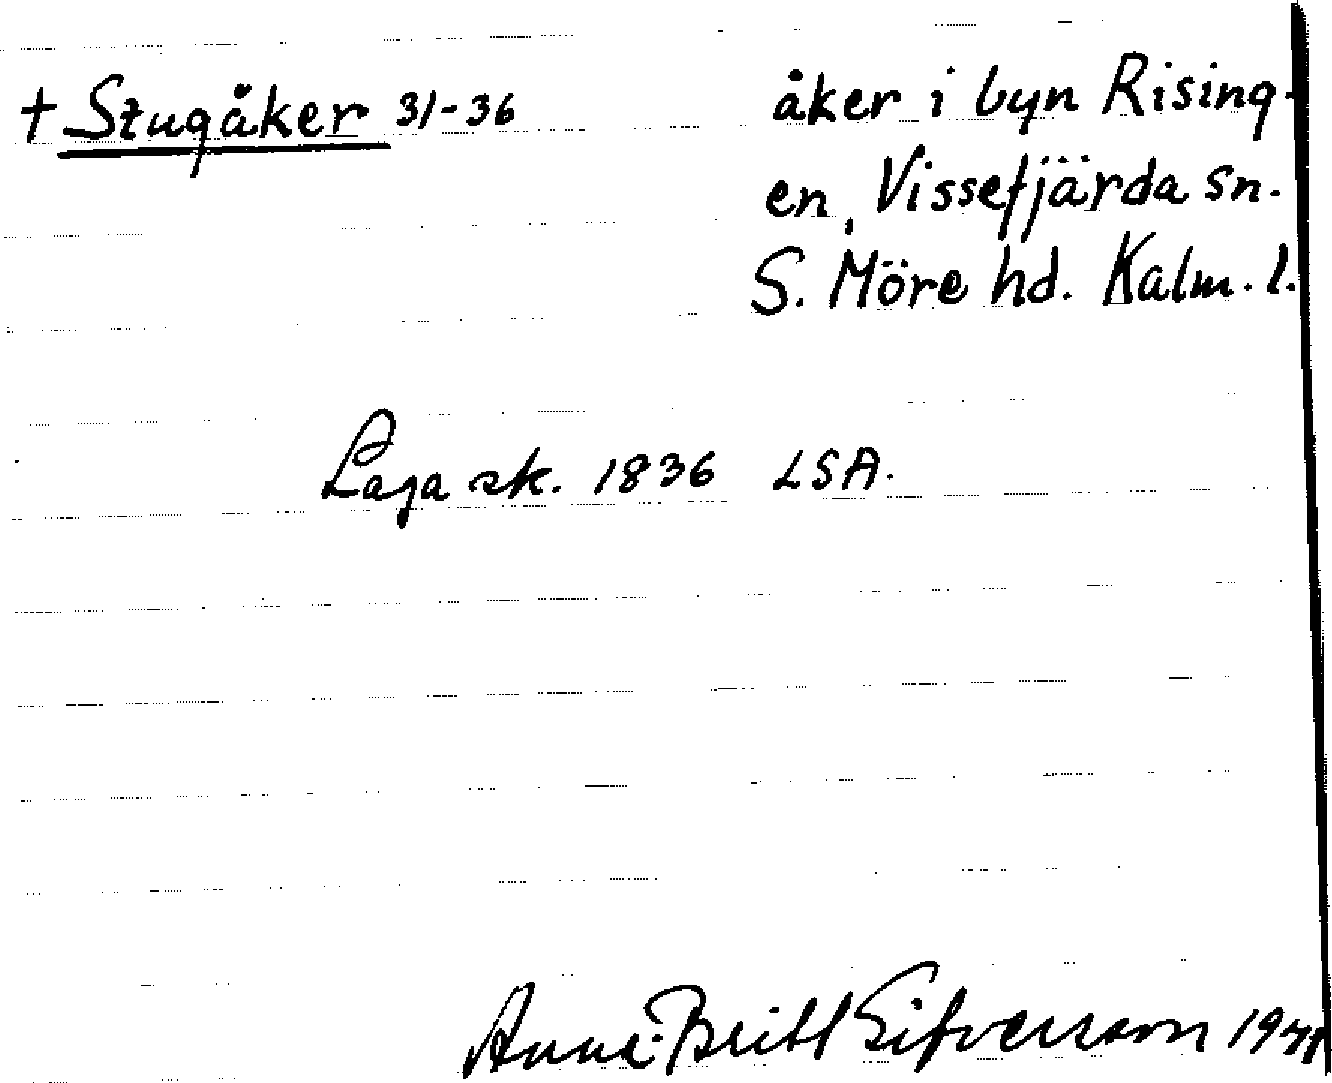 † Stugåker 31-36 åker i byn Rising-
en, Vissefjärda sn.
S. Möre hd. Kalm. l.
Laga sk. 1836 LSA.
Anna-Britt Sifversson